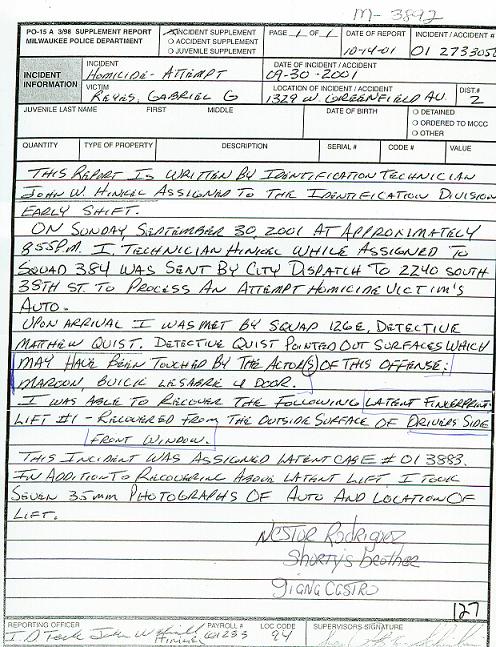 M-3892
PO-15 A 3/98 SUPPLEMENT REPORT
MILWAUKEE POLICE DEPARTMENT
INCIDENT SUPPLEMENT
ACCIDENT SUPPLEMENT
JUVENILE SUPPLEMENT
PAGE 1 OF 1
DATE OF REPORT
10-14-01
INCIDENT / ACCIDENT #
01 273305
INCIDENT INFORMATION
INCIDENT
HOMICIDE - ATTEMPT
DATE OF INCIDENT / ACCIDENT
09-30-2001
VICTIM
REYES, GABRIEL G
LOCATION OF INCIDENT / ACCIDENT
1329 W. GREENFIELD AV.
DIST.#
2
JUVENILE LAST NAME FIRST MIDDLE
DATE OF BIRTH
DETAINED
ORDERED TO MCCC
OTHER
QUANTITY TYPE OF PROPERTY DESCRIPTION SERIAL # CODE # VALUE
THIS REPORT IS WRITTEN BY IDENTIFICATION TECHNICIAN
JOHN W. HINKEL ASSIGNED TO THE IDENTIFICATION DIVISION
EARLY SHIFT.
ON SUNDAY, SEPTEMBER 30, 2001 AT APPROXIMATELY
855PM. I, TECHNICIAN HINKEL WHILE ASSIGNED TO
SQUAD 384 WAS SENT BY CITY DISPATCH TO 2240 SOUTH
38TH ST. TO PROCESS AN ATTEMPT HOMICIDE VICTIM'S
AUTO.
UPON ARRIVAL I WAS MET BY SQUAD 126E, DETECTIVE
MATHEW QUIST. DETECTIVE QUIST POINTED OUT SURFACES WHICH
MAY HAVE BEEN TOUCHED BY THE ACTOR(S) OF THIS OFFENSE;
MAROON, BUICK LESABRE 4 DOOR.
I WAS ABLE TO RECOVER THE FOLLOWING LATENT FINGERPRINT.
LIFT #1 - RECOVERED FROM THE OUTSIDE SURFACE OF DRIVERS SIDE
FRONT WINDOW.
THIS INCIDENT WAS ASSIGNED LATENT CASE # 013883.
IN ADDITION TO RECOVERING ABOVE LATENT LIFT, I TOOK
SEVEN 35MM PHOTOGRAPHS OF AUTO AND LOCATION OF
LIFT.
NESTOR Rodriguez
Shorty's Brother
Giana CASTRO
127
REPORTING OFFICER PAYROLL # LOC CODE SUPERVISORS SIGNATURE
I.D Tech John W 94